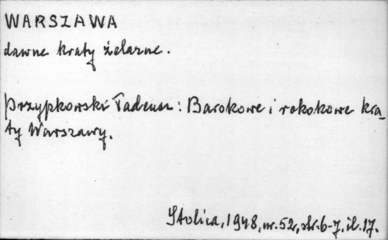 WARSZAWA
dawne kraty żelazne.
Przypkowski Tadeusz: Barokowe i rokokowe kra-
ty Warszawy.
Stolica, 1948, nr. 52, str. 6-7. il. 17.